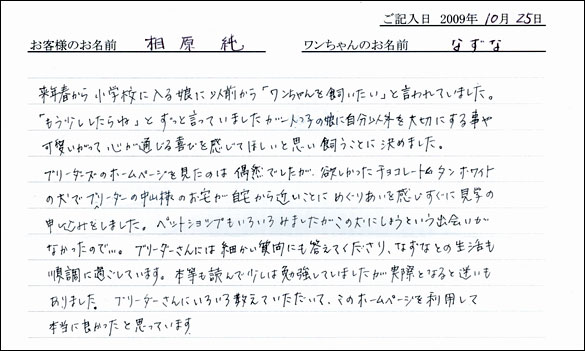 ご記入日 2009年 10月 25日
お客様のお名前 相原 純 ワンちゃんのお名前 なずな
来年春から小学校に入る娘に以前から「ワンちゃんを飼いたい」と言われてしました。
「もう少ししたらね」とずっと言っていましたが一人っ子の娘に自分以外を大切にする事や
可愛いがって心が通じる喜びを感じてほしいと思い飼うことに決めました。
ブリーダーズのホームページを見たのは偶然でしたが、欲しかったチョコレートタンホワイト
の犬でブリーダーの中山様のお宅が自宅から近いことにめぐりあいを感じすぐに見学の
申し込みをしました。ペットショップもいろいろみましたがこの犬にしようという出会いが
なかったので…。ブリーダーさんには細かい質問にも答えてくださり、なずなとの生活も
順調に過ごしています。本等も読んで少しは勉強してしましたが実際となると迷いも
ありました。ブリーダーさんにいろいろ教えていただいて、このホームページを利用して
本当に良かったと思っています